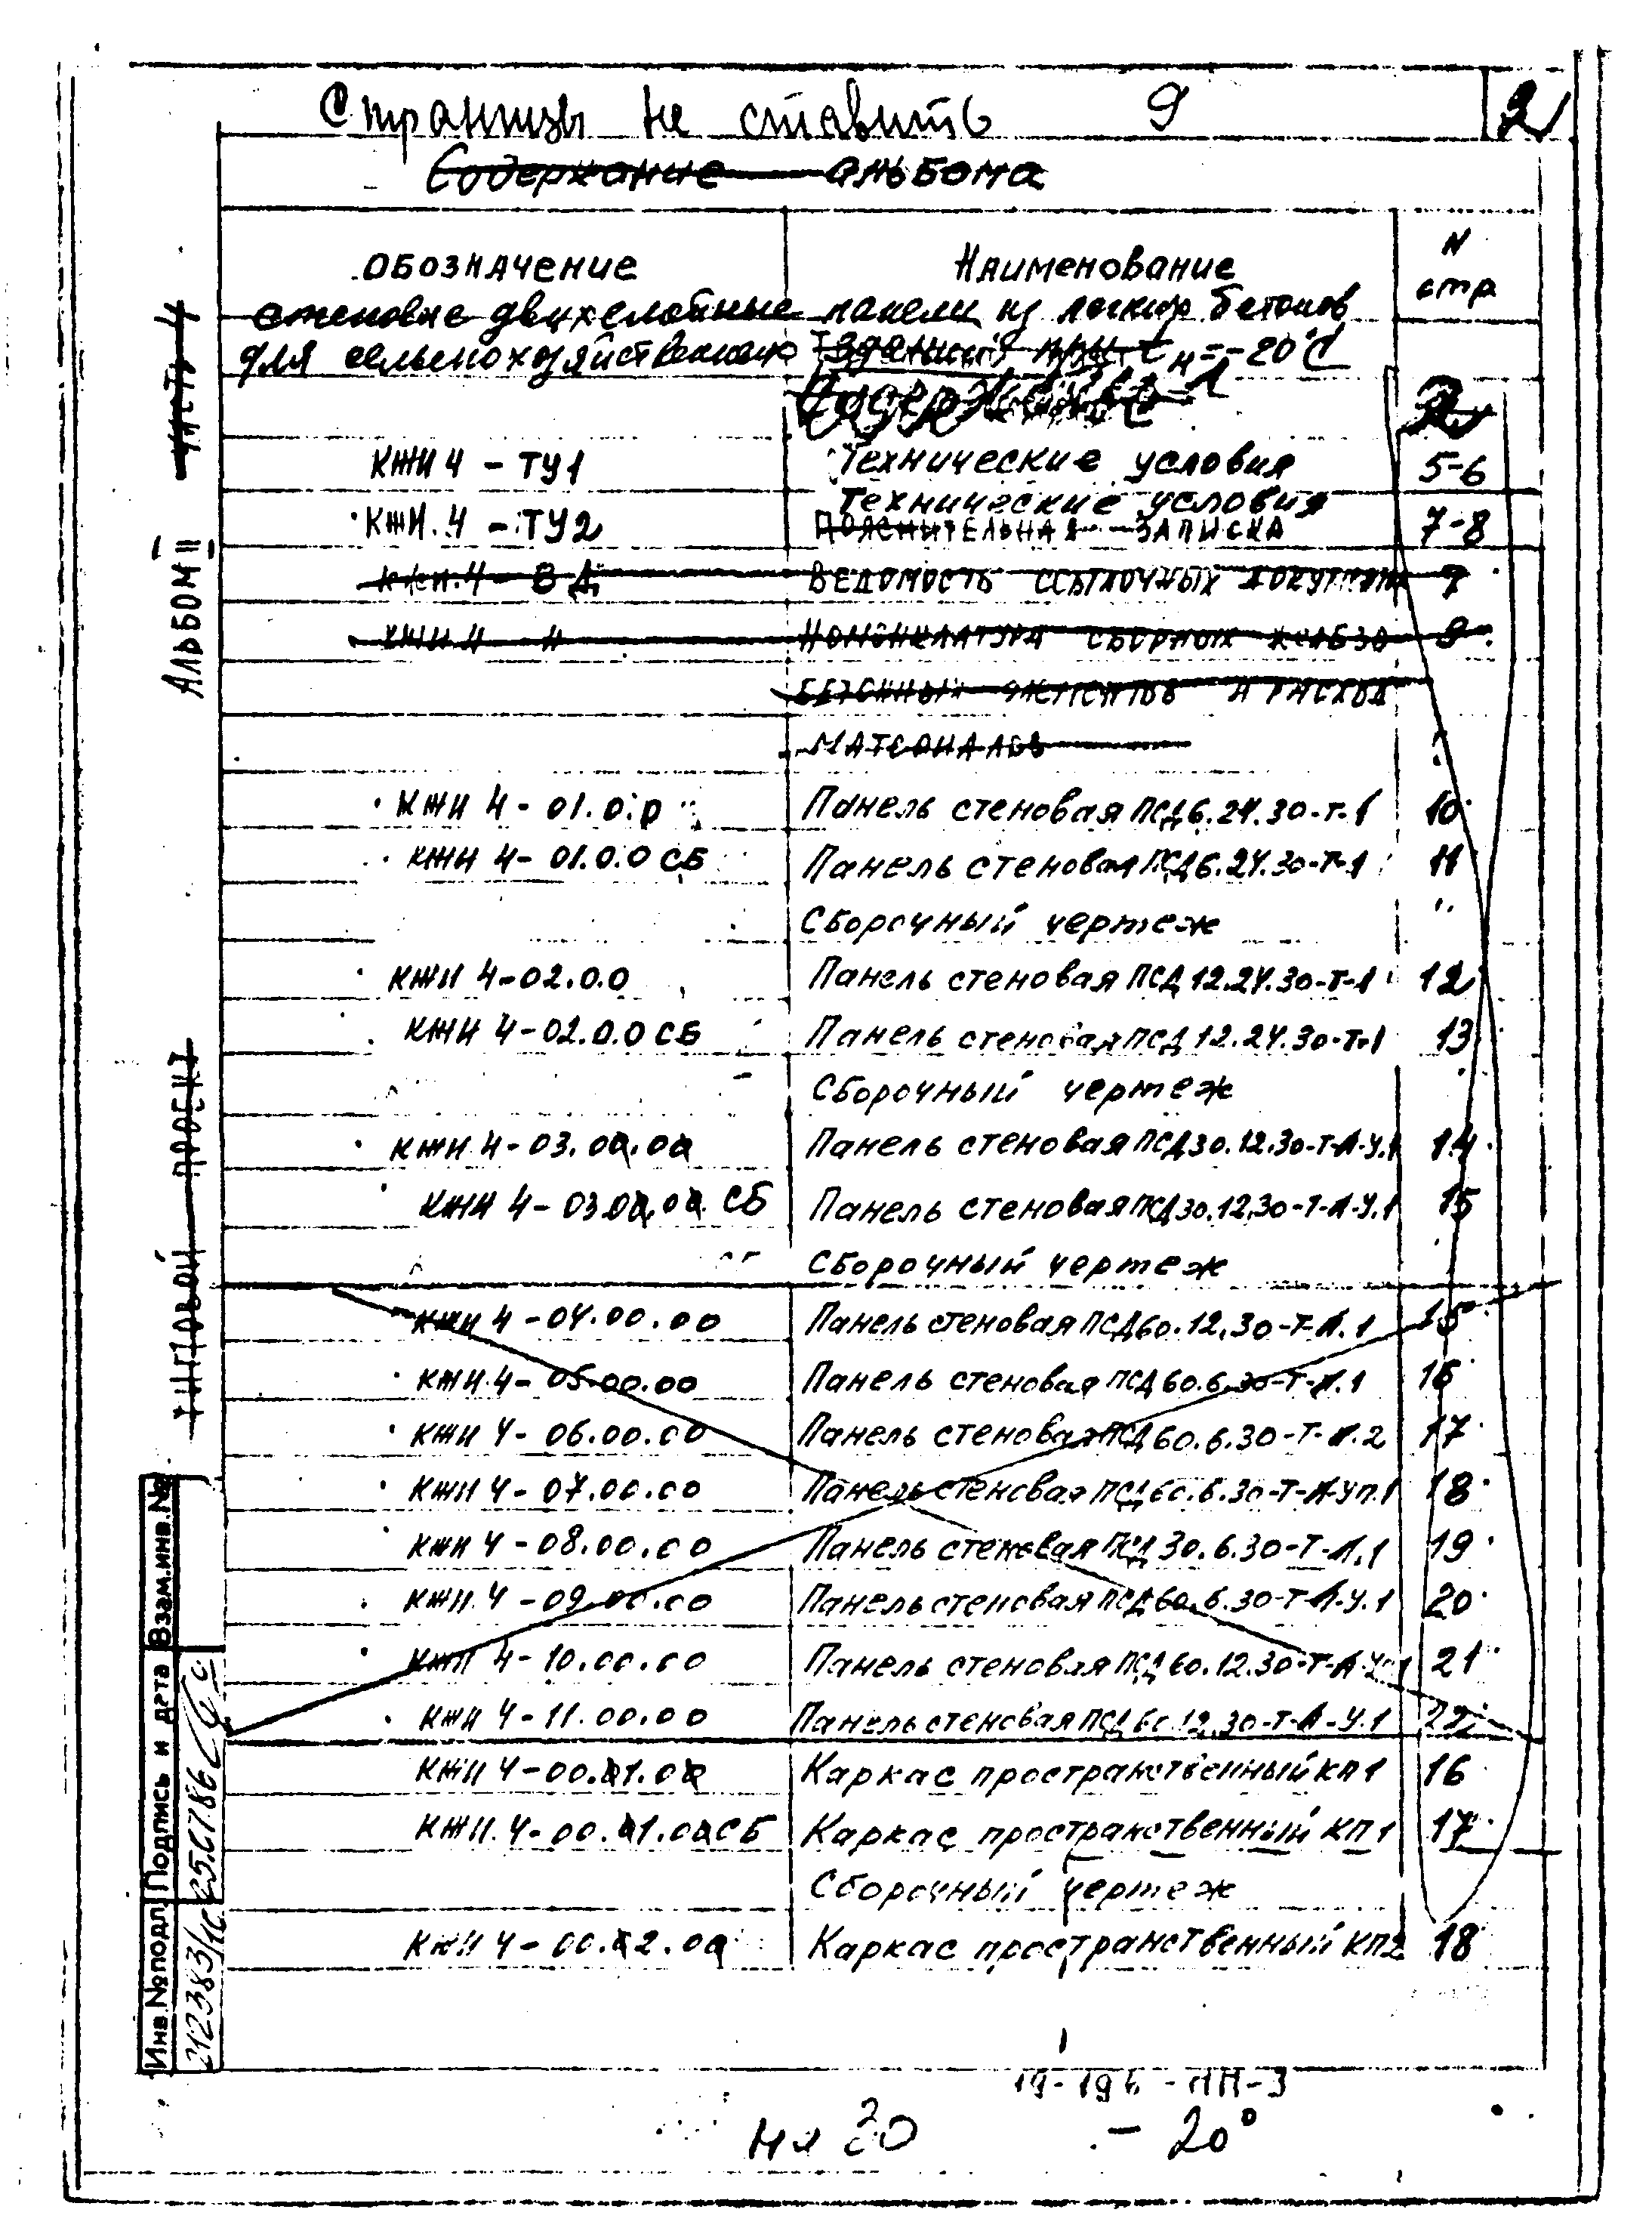 Страницы не ставить 9 2
Содержание альбома
Обозначение Наименование N стр
стеновые двухслойные панели из легких бетонов
для сельскохозяйственных зданий при tн=-20°C
КЖИ 4 - ТУ1 Технические условия 5-6
Технические условия
КЖИ.4 - ТУ2 Пояснительная записка 7-8
КЖИ.4 - ВД Ведомость ссылочных документов 7
КЖИ.4 - Н Номенклатура сборных железо 9
бетонных элементов и расход
материалов
КЖИ 4-01.0.0 Панель стеновая ПСД6.24.30-Т-1 10
КЖИ 4-01.0.0 СБ Панель стеновая ПСД6.24.30-Т-1 11
Сборочный чертеж
КЖИ 4-02.0.0 Панель стеновая ПСД12.24.30-Т-1 12
КЖИ 4-02.0.0 СБ Панель стеновая ПСД12.24.30-Т-1 13
Сборочный чертеж
КЖИ 4-03.00.00 Панель стеновая ПСД30.12.30-Т-Л-У.1 14
КЖИ 4-03.00.00 СБ Панель стеновая ПСД30.12.30-Т-Л-У.1 15
Сборочный чертеж
КЖИ 4-04.00.00 Панель стеновая ПСД60.12.30-Т-Л.1 15
КЖИ 4-05.00.00 Панель стеновая ПСД60.6.30-Т-Л.1 16
КЖИ 4-06.00.00 Панель стеновая ПСД60.6.30-Т-Л.2 17
КЖИ 4-07.00.00 Панель стеновая ПСД60.6.30-Т-Л-Уп.1 18
КЖИ 4-08.00.00 Панель стеновая ПСД30.6.30-Т-Л.1 19
КЖИ 4-09.00.00 Панель стеновая ПСД60.6.30-Т-Л-У.1 20
КЖИ 4-10.00.00 Панель стеновая ПСД60.12.30-Т-Л-У.1 21
КЖИ 4-11.00.00 Панель стеновая ПСД60.12.30-Т-Л-У.1 22
КЖИ 4-00.1.0 Каркас пространственный КП1 16
КЖИ 4-00.1.0 СБ Каркас пространственный КП1 17
Сборочный чертеж
КЖИ 4-00.2.0 Каркас пространственный КП2 18
-20°
Часть
Альбом II
Типовой проект
Взам.инв.№
Подпись и дата
Инв.№подл